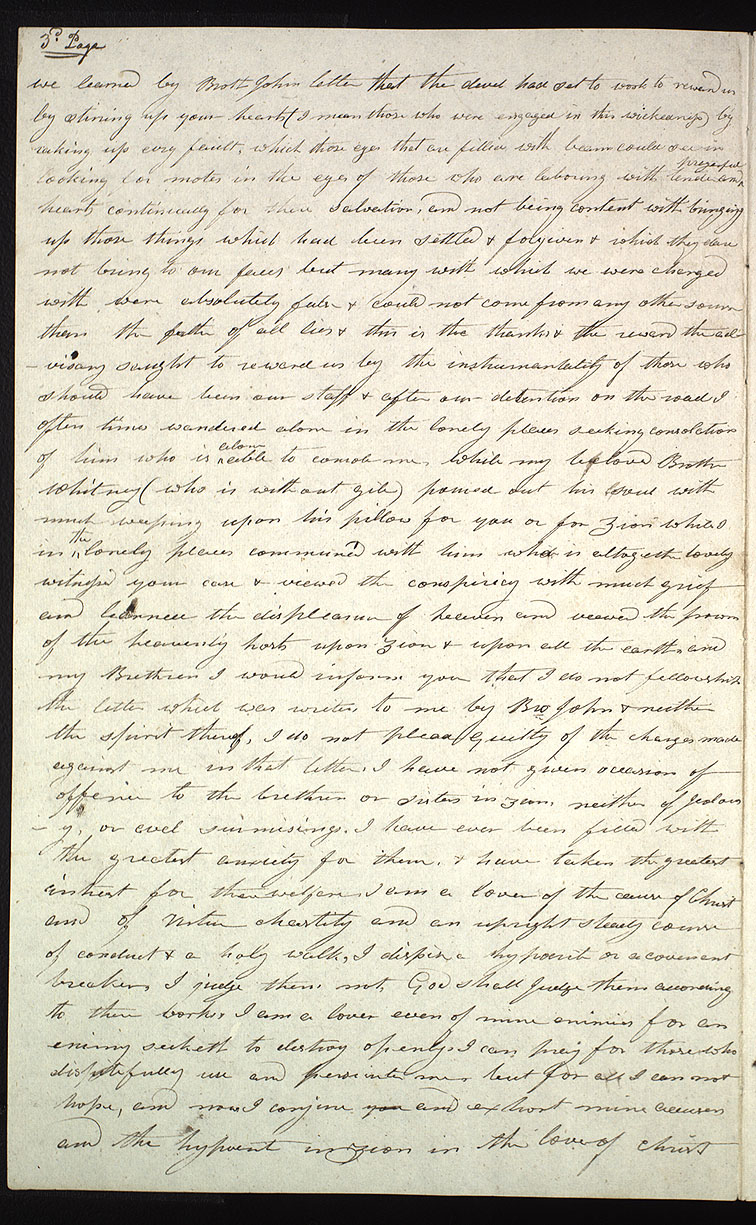 3d. Page
we learned by Broth John letter that the devel had set to work to reward us
by stiring up your hearts (I mean those who were engaged in this wickedness) by
raking up evry fault, which those eyes that are filled with beam could see in
looking for motes in the eyes of those who are laboring with tender and prayerful
hearts continually for there salvation, and not being content with bringing
up those things which had been settled & forgiven & which they dare
not bring to our faces but many with which we were charged
with were absolutely false & could not come from any other sourse
than the father of all lies & this is the thanks & the reward the ad
-visary saught to reward us by the instrumentality of those who
should have been our staff & after our detention on the road I
often time wandered alone in the lonely places seeking consolation
of him who is alone able to console me, while my beloved Brother
Whitney (who is without gile) poured out his soul with
much weeping upon his pillow for you or for Zion while I
in the lonely places communed with him who is altogeth lovely
witnesed your case & viewed the conspiricy with much grief
and learned the displeasure of heaven and viewed the frowns
of the heavenly hosts upon Zion & upon all the earth and
my Brethren I would inform you that I do not fellowship
the letter which was writen to me by Bro John & neither
the spirit thereof, I do not plead Guilty of the charges made
against me in that letter, I have not given occasion of
offence to the brethren or sisters in Zion, neither of Jealous
-y, or evel surmisings. I have ever been filled with
the greatest anxiety for them, & have taken the greatest
intrest for their welfare I am a lover of the cause of Christ
and of virtue chastity and an upright steady course
of conduct & a holy walk, I dispise a hypocrit or a covenant
breaker, I judge them not, God shall Judge them according
to there works, I am a lover even of mine enimies for an
enimy seeketh to destroy openly I can pray for those who
dispitefully use and persicute me, but for all I can not
hope, and now I conjure you and exhort mine accusers
and the hypocrit in Zion in the love of Christ